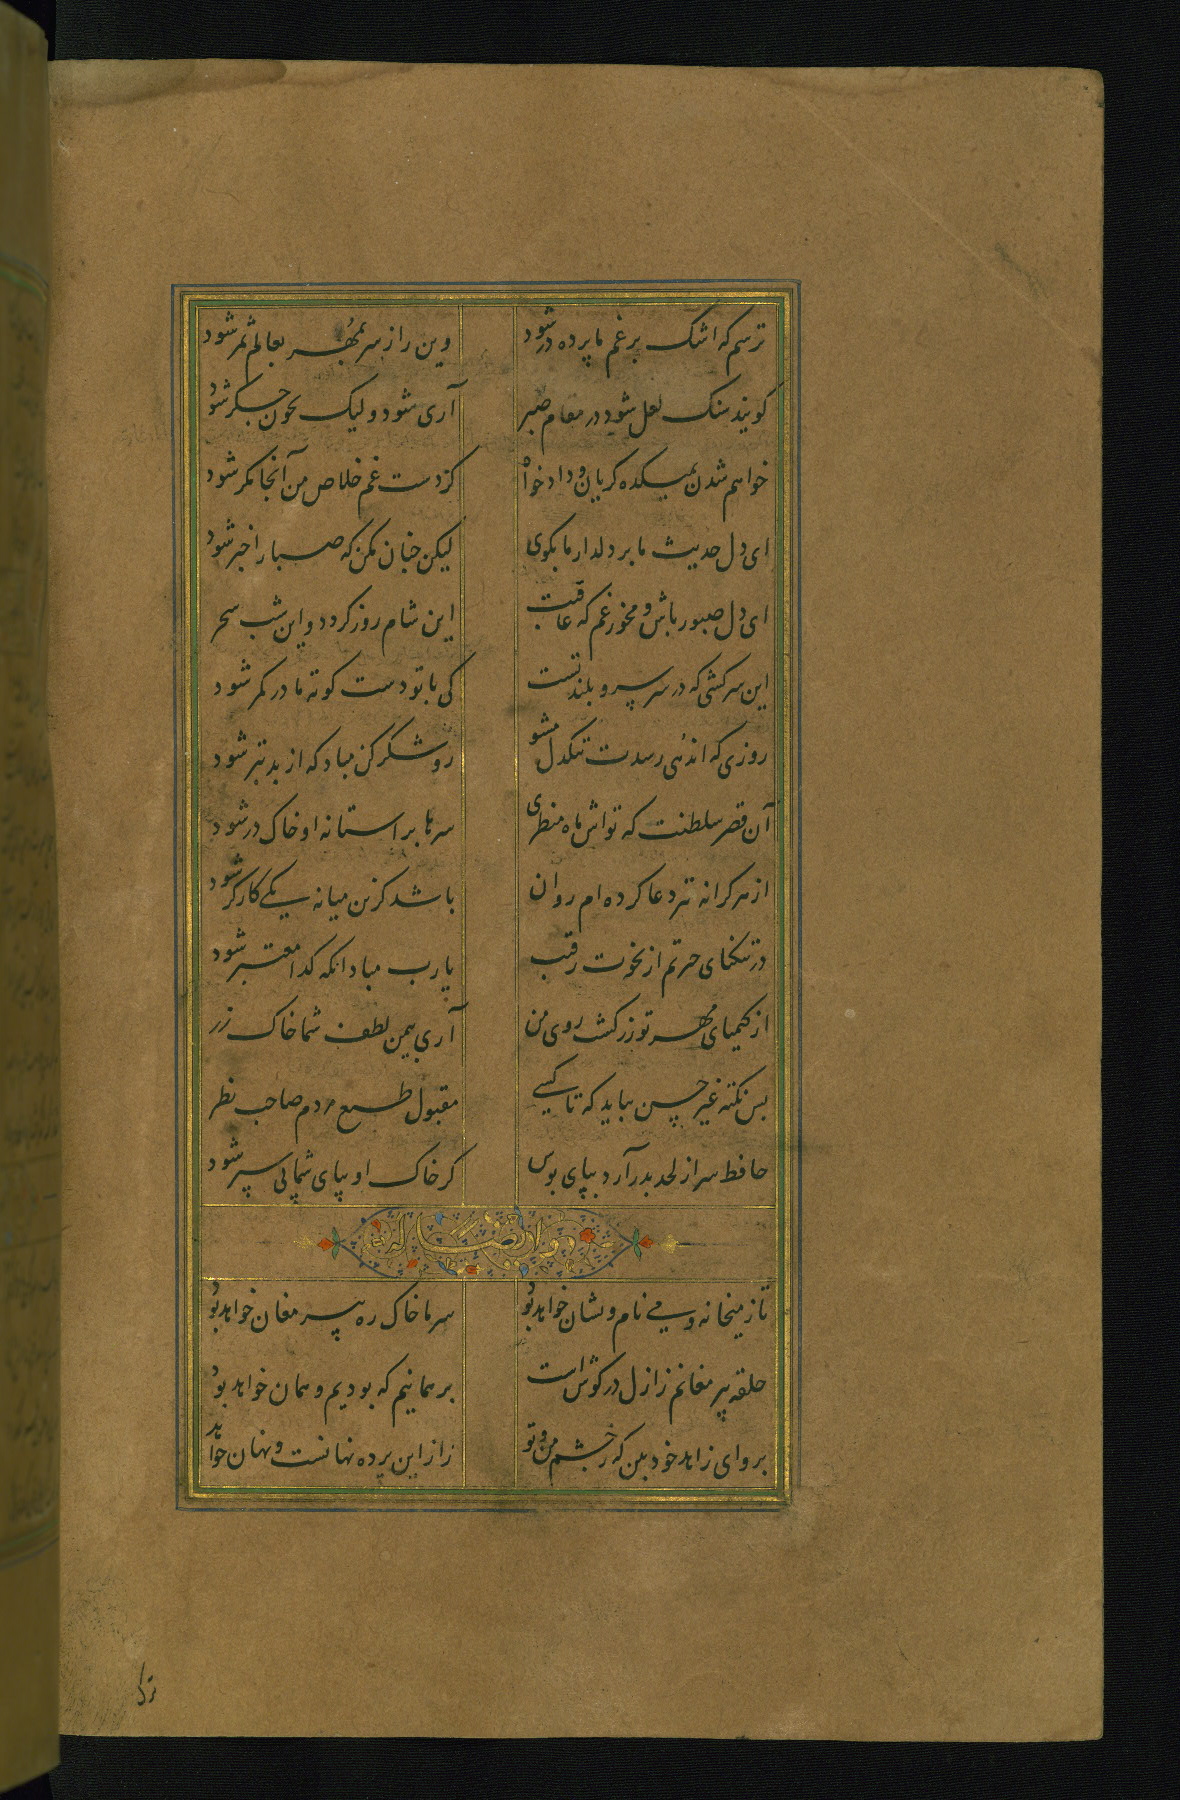 ترسم که اشک بر غم ما پرده در شود وین راز سر بمهر بعالم ثمر شود
کویند سنک لعل شود در مقام صبر آری شود ولیک بخون جکر شود
خواهم شدن بمیکده کریان و داد خواه کز دست غم خلاص من آنجا مکر شود
ای دل حدیث ما بر دلدار ما بکوی لیکن چنان مکن که صبا را خبر شود
ای دل صبور باش و مخور غم که عاقبت این شام روز کردد و این شب سحر
این سرکشی که در سر سرو بلند تست کی با تو دست کوته ما در کمر شود
روزی که اندُهی رسدت تنکدل مشو رو شکر کن مباد که از بد بتر شود
آن قصر سلطنت که تواش ماه منظری سرها بر استانه او خاک در شود
از هر کرانه تیر دعا کرده ام روان باشد کزین میانه یکی کارکر شود
در تنکنای حیرتم از نخوت رقیب یارب مباد انکه کدا معتبر شود
از کیمیای مهر تو زر کشت روی من آری بیمن لطف شما خاک زر
بس نکته غیر حسن بباید که تا کسی مقبول طبع مردم صاحب نظر
حافظ سر از لحد بدر آرد بپای بوس کر خاک او بپای شما پی سپر شود
تا ز میخانه و می نام و نشان خواهد بود سر ما خاک ره پیر مغان خواهد بود
حلقه پیر مغانم ز ازل در کوش است بر همانیم که بودیم و همان خواهد بود
برو ای زاهد خودبین که ز چشم من و تو راز این پرده نهانست و نهان خواهد
ترک